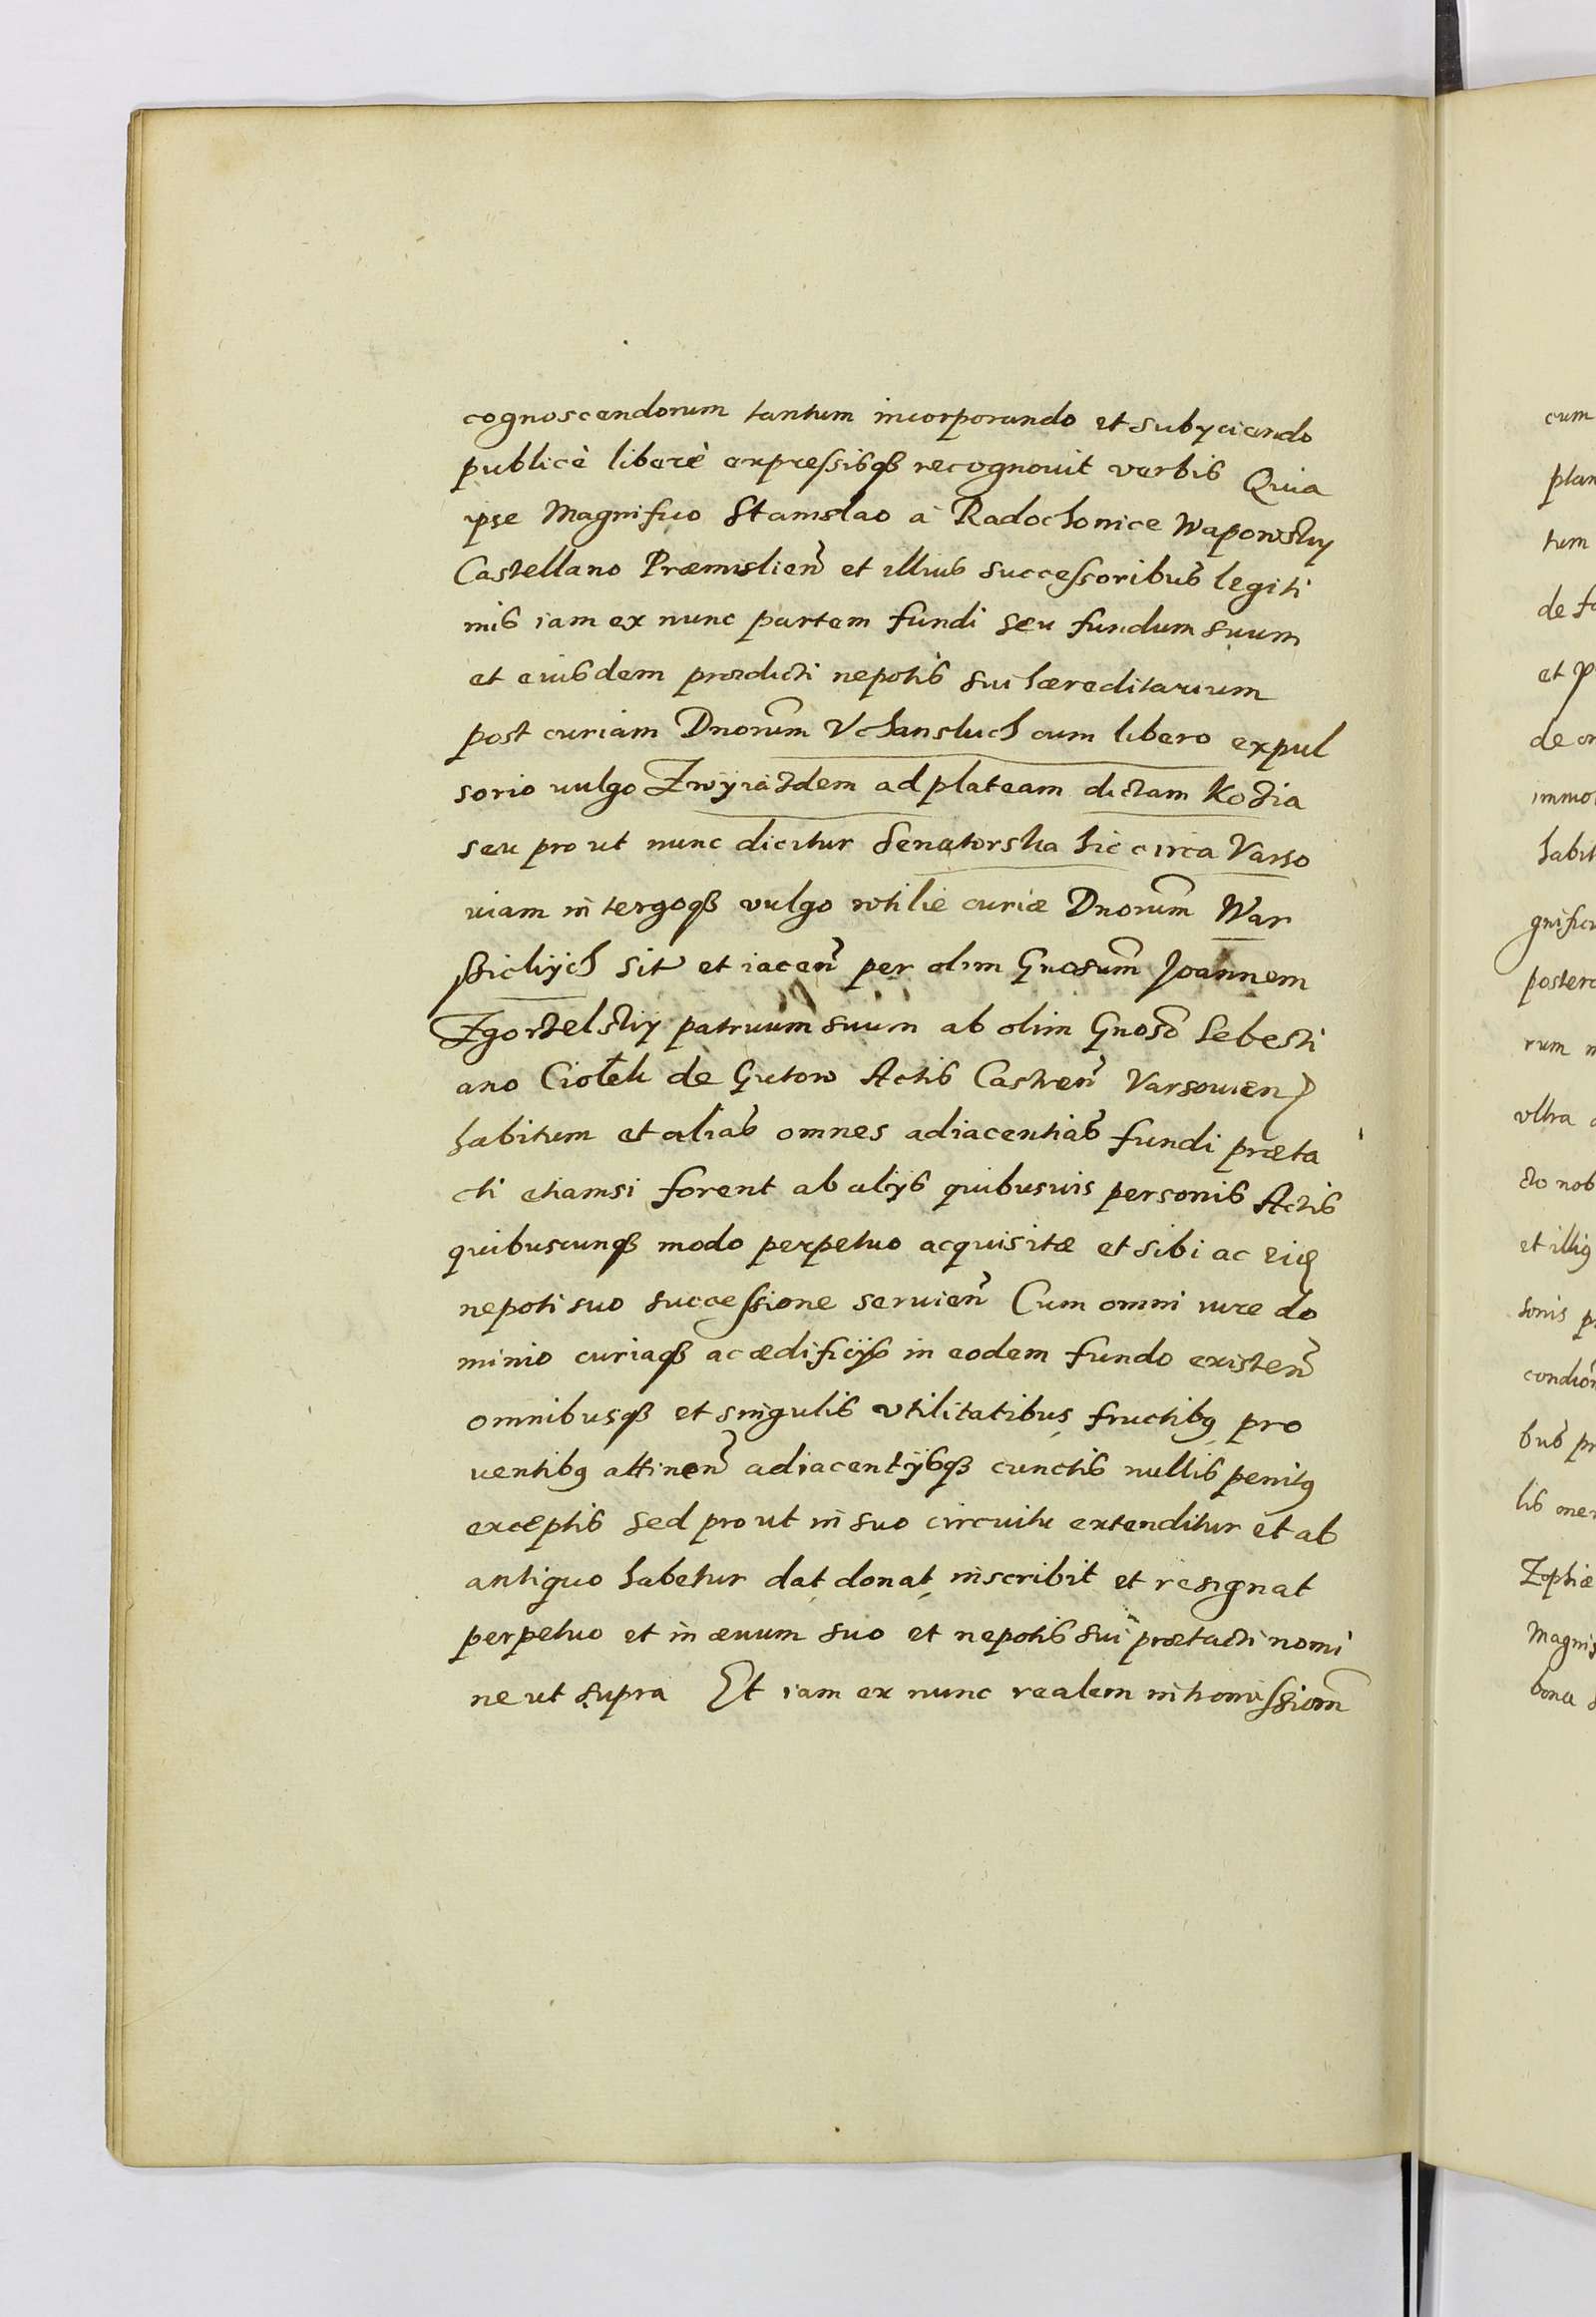 cognoscendorum tantum incorporando et subyciendo
publicè liberè expressisq3 recognouit verbis Quia
ipse Magnifico Stanislao à Radochonice Wapowsky
Castellano Præmislien̄ et illius successoribus legiti
mis iam ex nunc partem fundi seu fundum suum
et eiusdem prædicti nepotis sui hæreditarium
post curiam Dnorum̄ Vchanskich cum libero expul
sorio vulgo Zwyiazdem ad plateam dictam Kozia
seu pro ut nunc dicitur Senatorska hic circa Varso
uiam in tergoq3 vulgo wtilie curiæ Dnorum̄ War
ssickijch sit et iacen̄ per olim Gnosum̄ Joannem
Zgorzelsky patruum suum ab olim Gnoso Sebesti
ano Ciołek de Gutow Actis Castren̄ Varsouien
habitum et alias omnes adiacentias fundi præta
cti etiamsi forent ab alijs quibusuis personis Actis
quibuscunq3 modo perpetuo acquisitæ et sibi ac
nepoti suo successione seruien̄ Cum omni iure do
minio curiaq3 ac ædificijs in eodem fundo existen̄
omnibusq3 et singulis vtilitatibus fructibꝰ pro
uentibꝰ attinen̄ adiacentijsq3 cunctis nullis penitꝰ
exceptis sed pro ut in suo circuitu extenditur et ab
antiquo habetur dat donat inscribit et resignat
perpetuo et in æuum suo et nepotis sui prætacti nomi
ne ut supra Et iam ex nunc realem intromissiom̄
cum
plan
tum
de fa
et
de
immo
habit
gnific
poster
rum
vltra
cto nob
et illiꝰ
sonis
bus
lis
Zophiæ
Magnis
bona